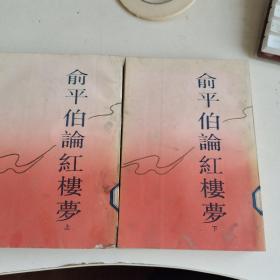 俞平伯論紅樓夢
上
俞平伯論紅樓夢
下